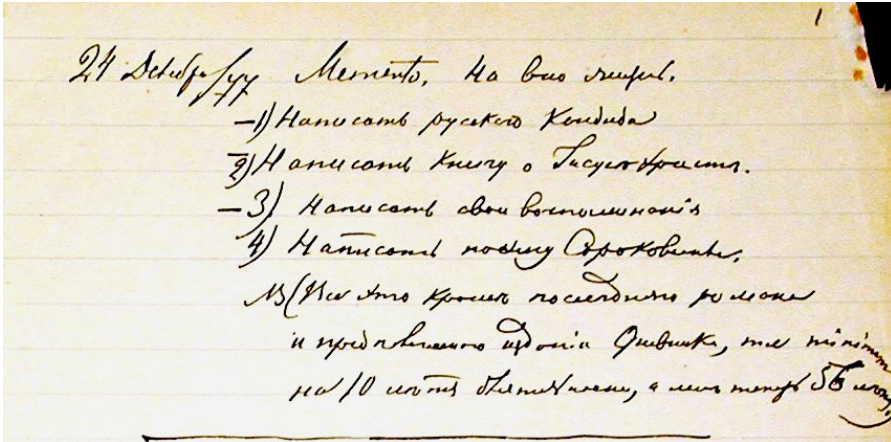 1
24 Декабря/77 Memento. На всю жизнь.
—1) Написать русского Кандида
—2) Написать книгу о Іисусѣ Христѣ.
—3) Написать свои воспоминанія
4) Написать поэму Сороковины.
NB (Все это кромѣ послѣдняго романа
и предполагаемаго изданія Дневника, т. е. minimum
на 10 лѣтъ дѣятельности, а мнѣ теперь 56 лѣтъ)